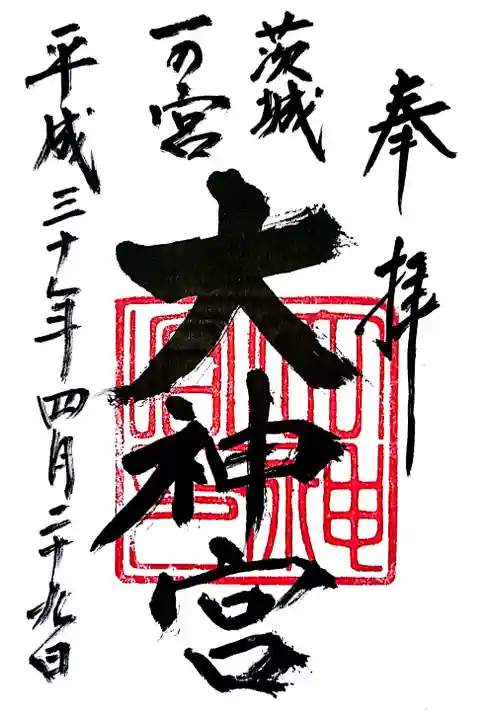 奉拝
茨城
一の宮
大神宮
平成三十年四月二十九日